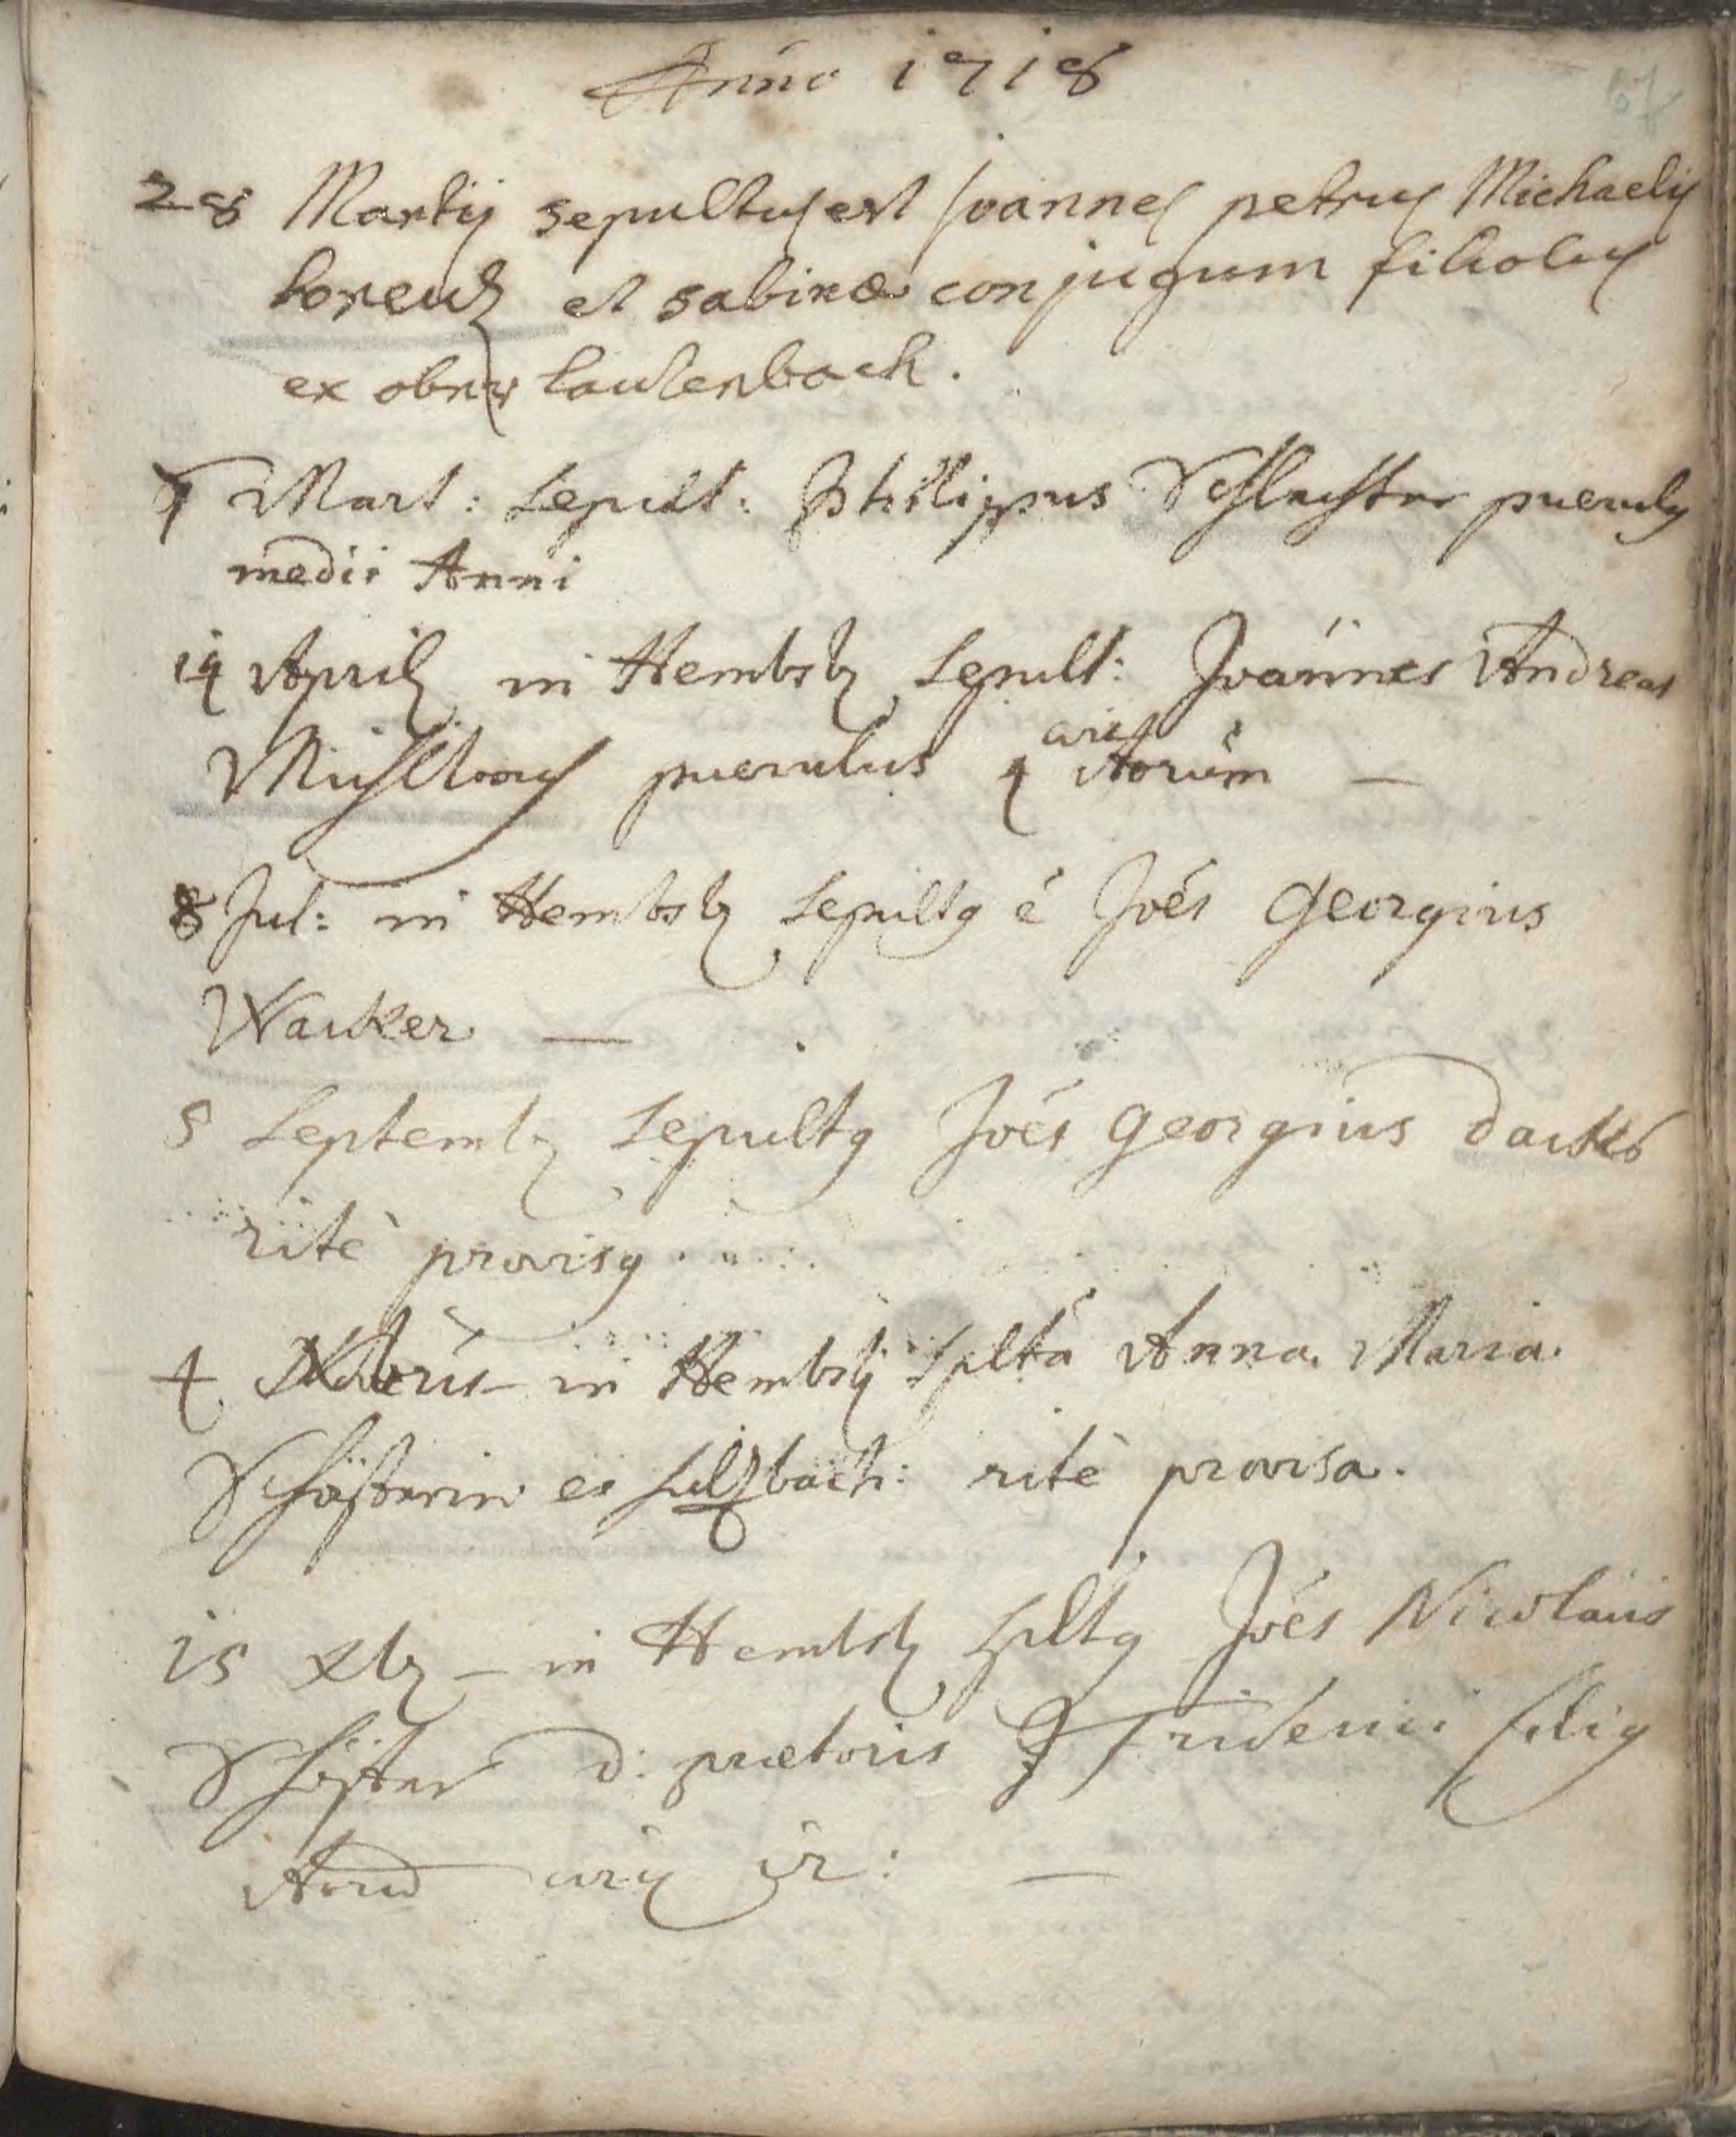 Anno 1718
67
28 Martij sepultus est Joannes petrus Michaelis
Lorentz et sabinæ conjugum filiolus
ex ober Laudenbach.
9 Mart: Sepult: Philippus Schlechter puerulus
medii Anni
14 April in Hembsb Sepult: Joannes Andreas
puerulus 4 Aorum
8 Jul: in Hembsb Sepultq é Joés Georgius
Wacker —
5 Septemb Sepultq Joés Georgius
ritè provisq
4 in Hembsb Splta Anna Maria
Schästerin ex Sultzbach: ritè provisa.
15 Xb — in Hembsb Spltq Joés Nicolaus
Schäster D: prætoris Friderici filiq